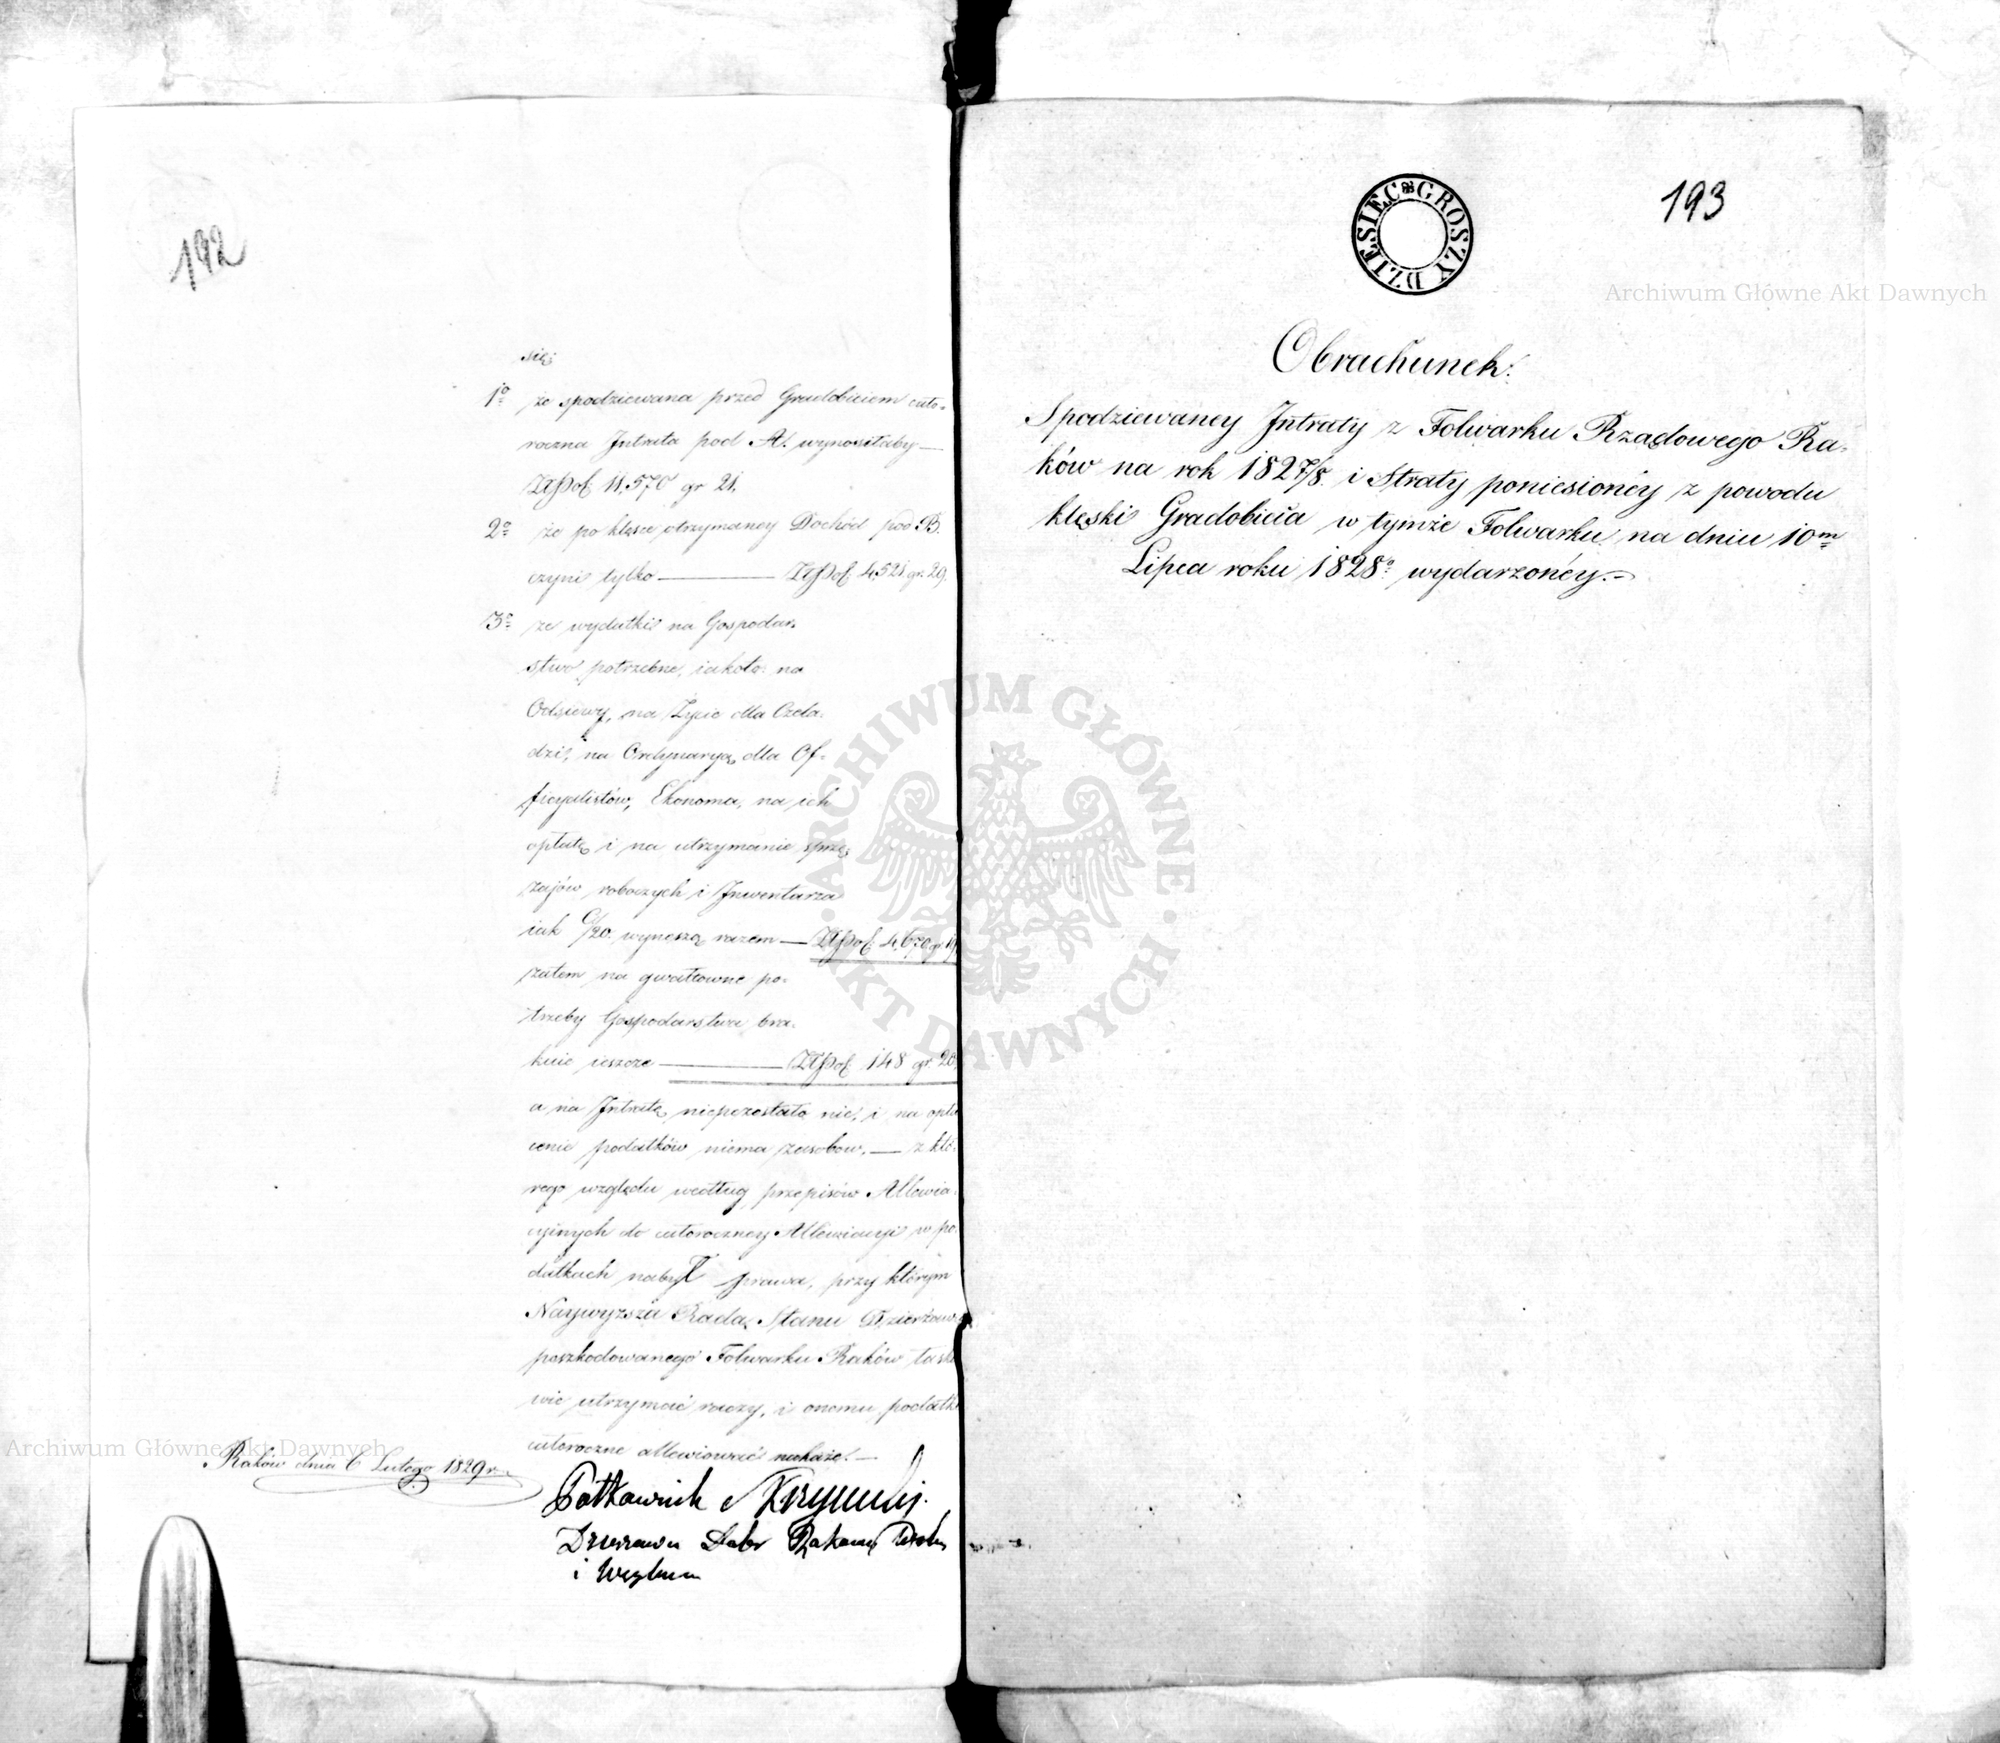 192
się:
1o że spodziewana przed Gradobiciem cało-
roczna Intrata pod A. wynosiłaby —
ZłPol: 11,570 gr 21.
2o że po klęsce otrzymaney Dochód pod B.
czyni tylko — ZłPol: 4,521 gr. 29.
3o że wydatki na Gospodar-
stwo potrzebne, iakoto: na
Odsiewy, na Życie dla Czela-
dzi, na Ordynaryą dla Of-
ficyalistów, Ekonoma, na ich
opłatę i na utrzymanie sprzę-
żajów roboczych i Inwentarza
iak C/20. wynoszą razem — ZłPol: 4,670 gr 19
zatem na gwałtowne po-
trzeby Gospodarstwa bra-
kuie ieszcze — ZłPol: 148 gr. 20.
a na Intratę niepozostało nic, i na opła
cenie podatków niema zasobów. — z któ-
rego względu według przepisów Allewia-
cyinych do całoroczney Allewiacyi w po-
datkach nabył prawa, przy którym
Naywyższa Rada Stanu Dzierżawcę
poszkodowanego Folwarku Raków łaska
wie utrzymać raczy, i onemu podatki
całoroczne allewiować nakaże. —
Raków dnia 6 Lutego 1829 r.
Półkownik
Dzierżawca Dobr Rakowa
i
193
DZIESIĘC GROSZY
Archiwum Główne Akt Dawnych
Obrachunek:
Spodziewaney Intraty z Folwarku Rządowego Ra-
ków na rok 1827/8. i Straty poniesionéy z powodu
klęski Gradobicia w tymże Folwarku na dniu 10m
Lipca roku 1828o wydarzonéy. —
ARCHIWUM GŁÓWNE AKT DAWNYCH
Archiwum Główne Akt Dawnych